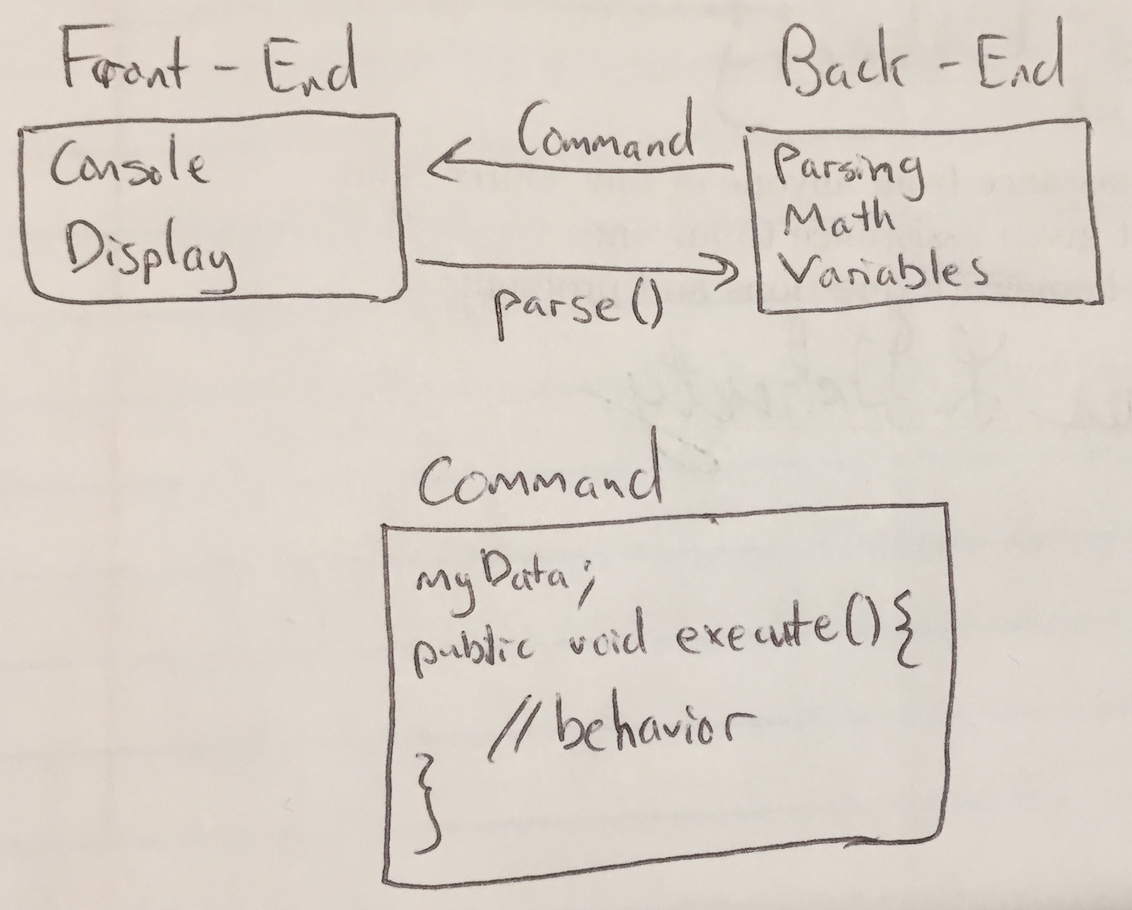 Front - End
Back - End
Console
Display
Command
parse()
Parsing
Math
Variables
Command
myData;
public void execute(){
//behavior
}